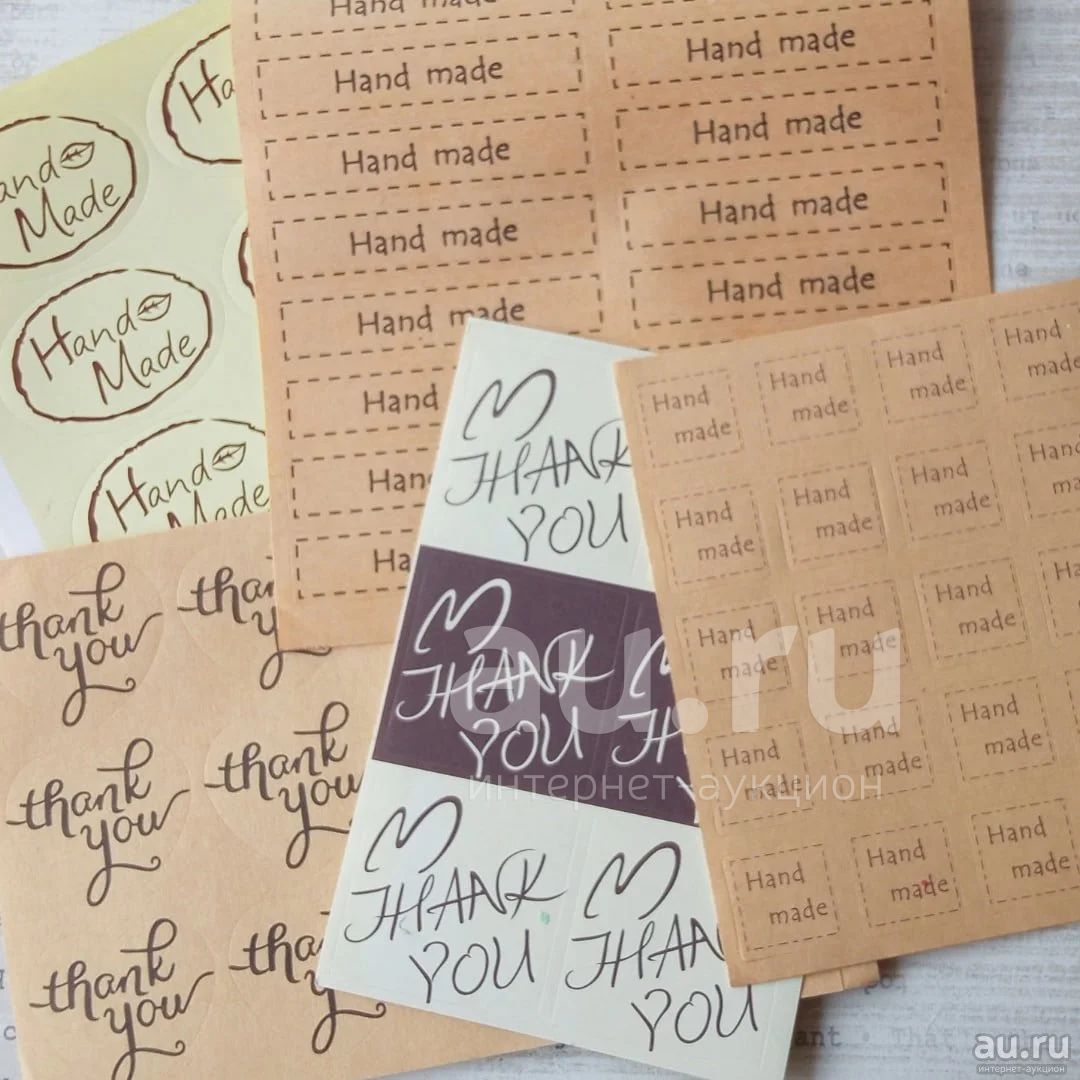 Hand made
Hand made
Hand made
Hand made
Hand made
Hand made
Hand made
Hand made
Hand made
Hand
Han
Ha
Ha
and
Made
Hand
Made
Hand
Made
thank
you
tha
y
thank
you
thank
you
thank
you
th
y
THANK
YOU
THANK
YOU
TH
Y
THANK
YOU
THANK
YOU
Hand
made
Hand
made
Hand
made
Hand
made
Hand
made
Hand
made
Hand
made
Hand
ma
Hand
made
Hand
made
Hand
made
Ha
Hand
made
Hand
made
Hand
made
Hand
made
Hand
made
Hand
made
au.ru
интернет-аукцион
ant • That
au.ru
интернет-аукцион